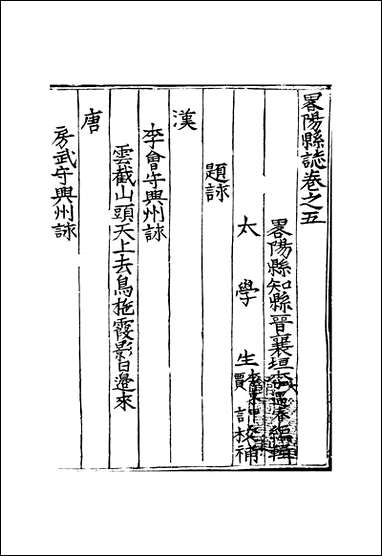 畧陽縣誌卷之五
畧陽縣知縣晉襄垣李遇春編輯
太學生賈言校補
題詠
漢
李會守興州詠
雲截山頭天上去鳥拖霞影日邊來
唐
房武守興州詠